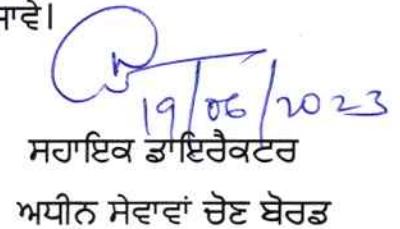 ਜਾਵੇ।
19/06/2023
ਸਹਾਇਕ ਡਾਇਰੈਕਟਰ
ਅਧੀਨ ਸੇਵਾਵਾਂ ਚੋਣ ਬੋਰਡ